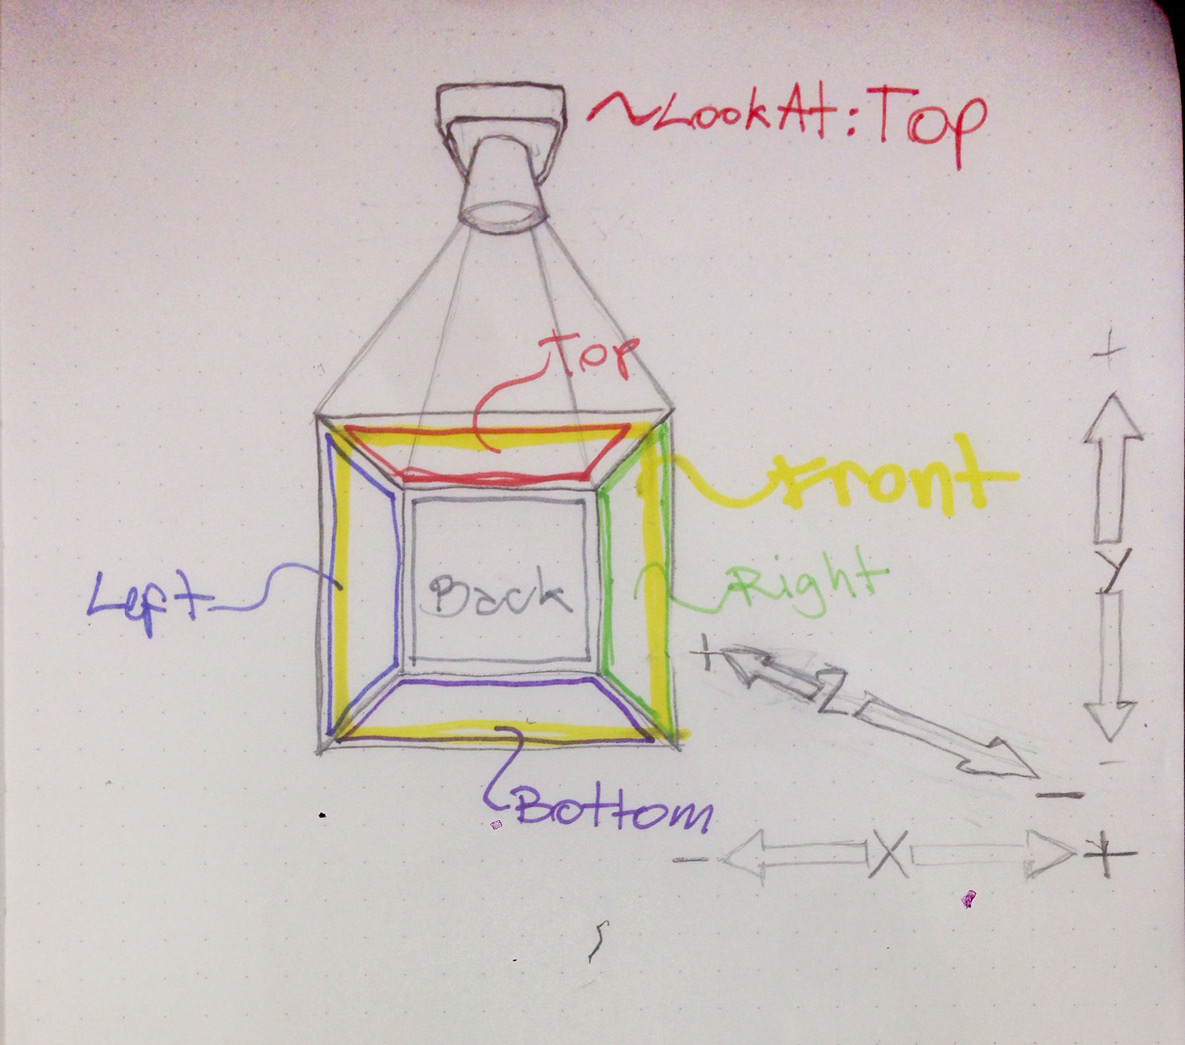 ~LookAt:Top
Top
+
Front
Left
Back
Right
y
+
Z
-
-
Bottom
- X +